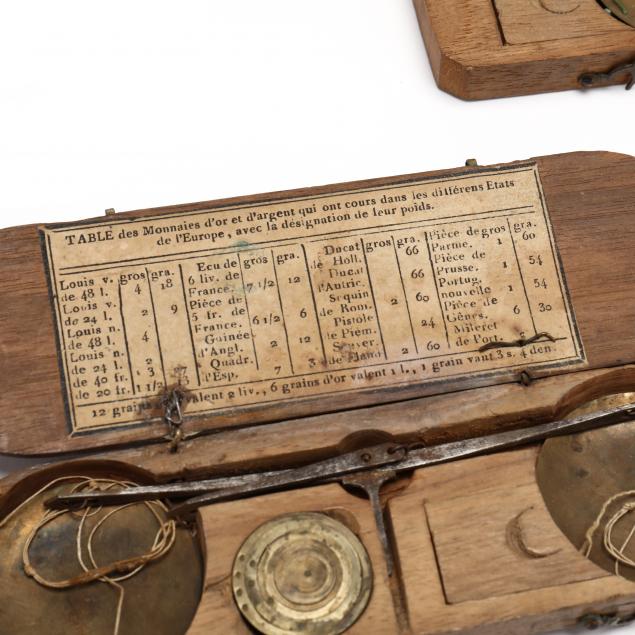 TABLE des Monnaies d'or et d'argent qui ont cours dans les différens Etats
de l'Europe, avec la désignation de leur poids.
Louis v. gros gra.
de 48 l. 4 18
Louis v.
de 24 l. 2 9
Louis n.
de 48 l. 4
Louis n.
de 24 l. 2
de 40 fr. 3 7
de 20 fr. 1 1/2
Ecu de gros gra.
6 liv. de
France. 7 1/2 12
Pièce de
5 fr. de
France. 6 1/2 6
Guinée
d'Angl. 2 12
Quadr.
l'Esp. 7 3
Ducat gros gra.
de Holl. 66
Ducat
d'Autric. 66
Sequin
de Rom. 2 60
Pistole
de Piém. 24
Souver.
de Fland 2 60
Pièce de gros gra.
Parme. 1 60
Pièce de
Prusse. 1 54
Portug.
nouvelle 1 54
Pièce de
Gênes. 6 30
Milleret
de Port.
12 grains valent 2 liv., 6 grains d'or valent 1 l., 1 grain vant 3 s. 4 den.